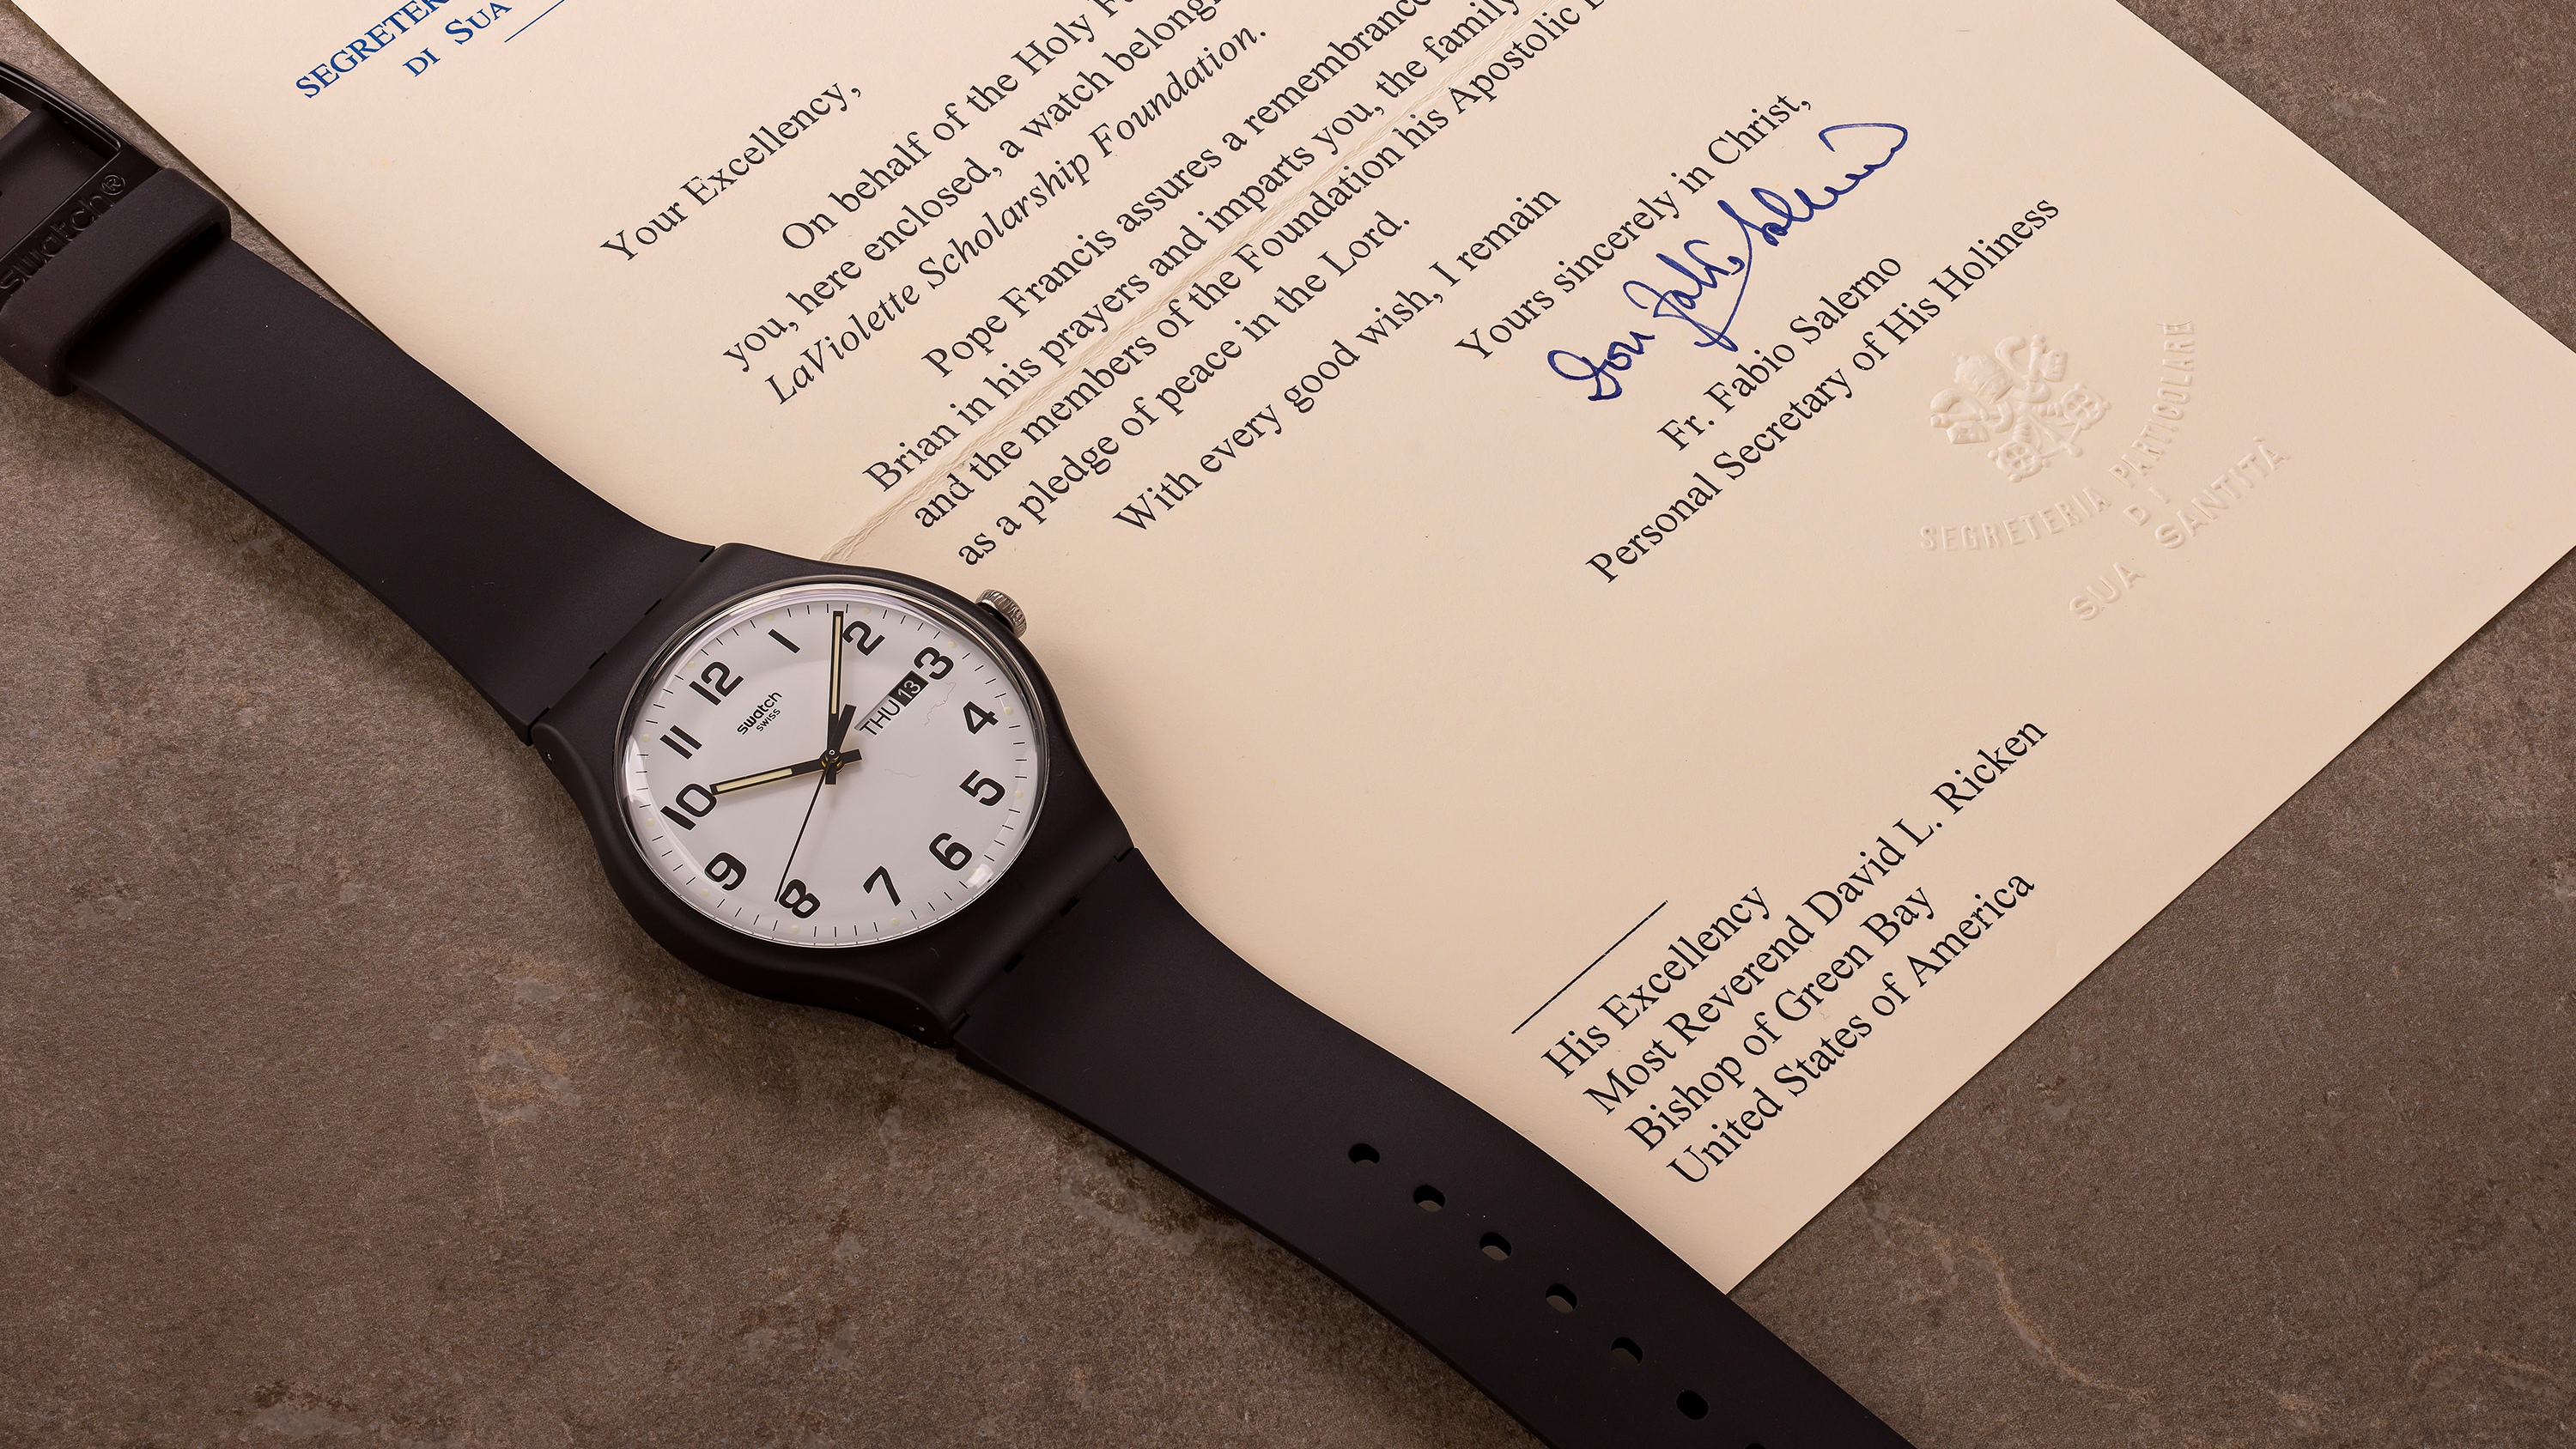 SEGRETER
DI SUA
Your Excellency,
On behalf of the Holy F
you, here enclosed, a watch belongi
LaViolette Scholarship Foundation.
Pope Francis assures a remembrance
Brian in his prayers and imparts you, the family
and the members of the Foundation his Apostolic
as a pledge of peace in the Lord.
With every good wish, I remain
Yours sincerely in Christ,
Fr. Fabio Salerno
Personal Secretary of His Holiness
SEGRETERIA PARTICOLARE
DI
SUA SANTITÀ
His Excellency
Most Reverend David L. Ricken
Bishop of Green Bay
United States of America
swatch®
12
1
2
3
4
5
6
7
8
9
10
11
swatch
SWISS
THU 13